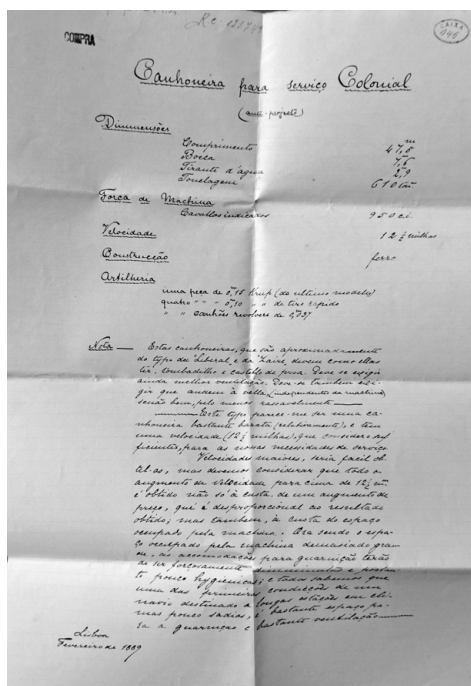 COMPRA
CAIXA
Canhoneira para serviço Colonial
(ante-projecto)
Dimmensões
m
Comprimento 47,8
Bocca 7,6
Tirante d'agua 2,9
Tonelagem 610 ton
Força de Machina
Cavallos indicados 950 ci.
Velocidade 12 ½ milhas
Construcção ferro
Artilheria
uma peça de 0,15 Krup (do ultimo modelo)
quatro " " 0,10 " " de tiro rapido
" " canhões revolvers de 0,037
Nota — Estas canhoneiras, que são aproximadamente
do typo da Liberal, e da Zaire, devem como ellas
ter, tombadilho e castello de proa. Deve se exigir
ainda melhor ventilação. Deve-se tambem exi-
gir que andem á vella (independente da machina)
senão bem, pelo menos rasoavelmente —
— Este typo, parece-me ser uma ca-
nhoneira bastante barata (relativamente), e tem
uma velocidade (12 ½ milhas), que considero suf-
ficiente, para as nossas necessidades de serviço
Velocidades maiores, seria facil ob-
tel-as, mas devemos considerar que todo o
augmento de velocidade para cima de 12 ½ m.
é obtido não só á custa de um augmento de
preço, que é desproporcional ao resultado
obtido; mas tambem, á custa do espaço
occupado pela machina. Ora sendo o espa-
ço occupado pela machina demasiado gran-
de, as acomodações para guarnição terão
de ser forçosamente diminuidas e portan-
to pouco hygienicas; e todos sabemos que
uma das primeiras condicções de um
navio destinado a longas estações em cli-
mas pouco sadios, é bastante espaço pa-
ra a guarnição e bastante ventilação —
Lisboa
Fevereiro de 1889